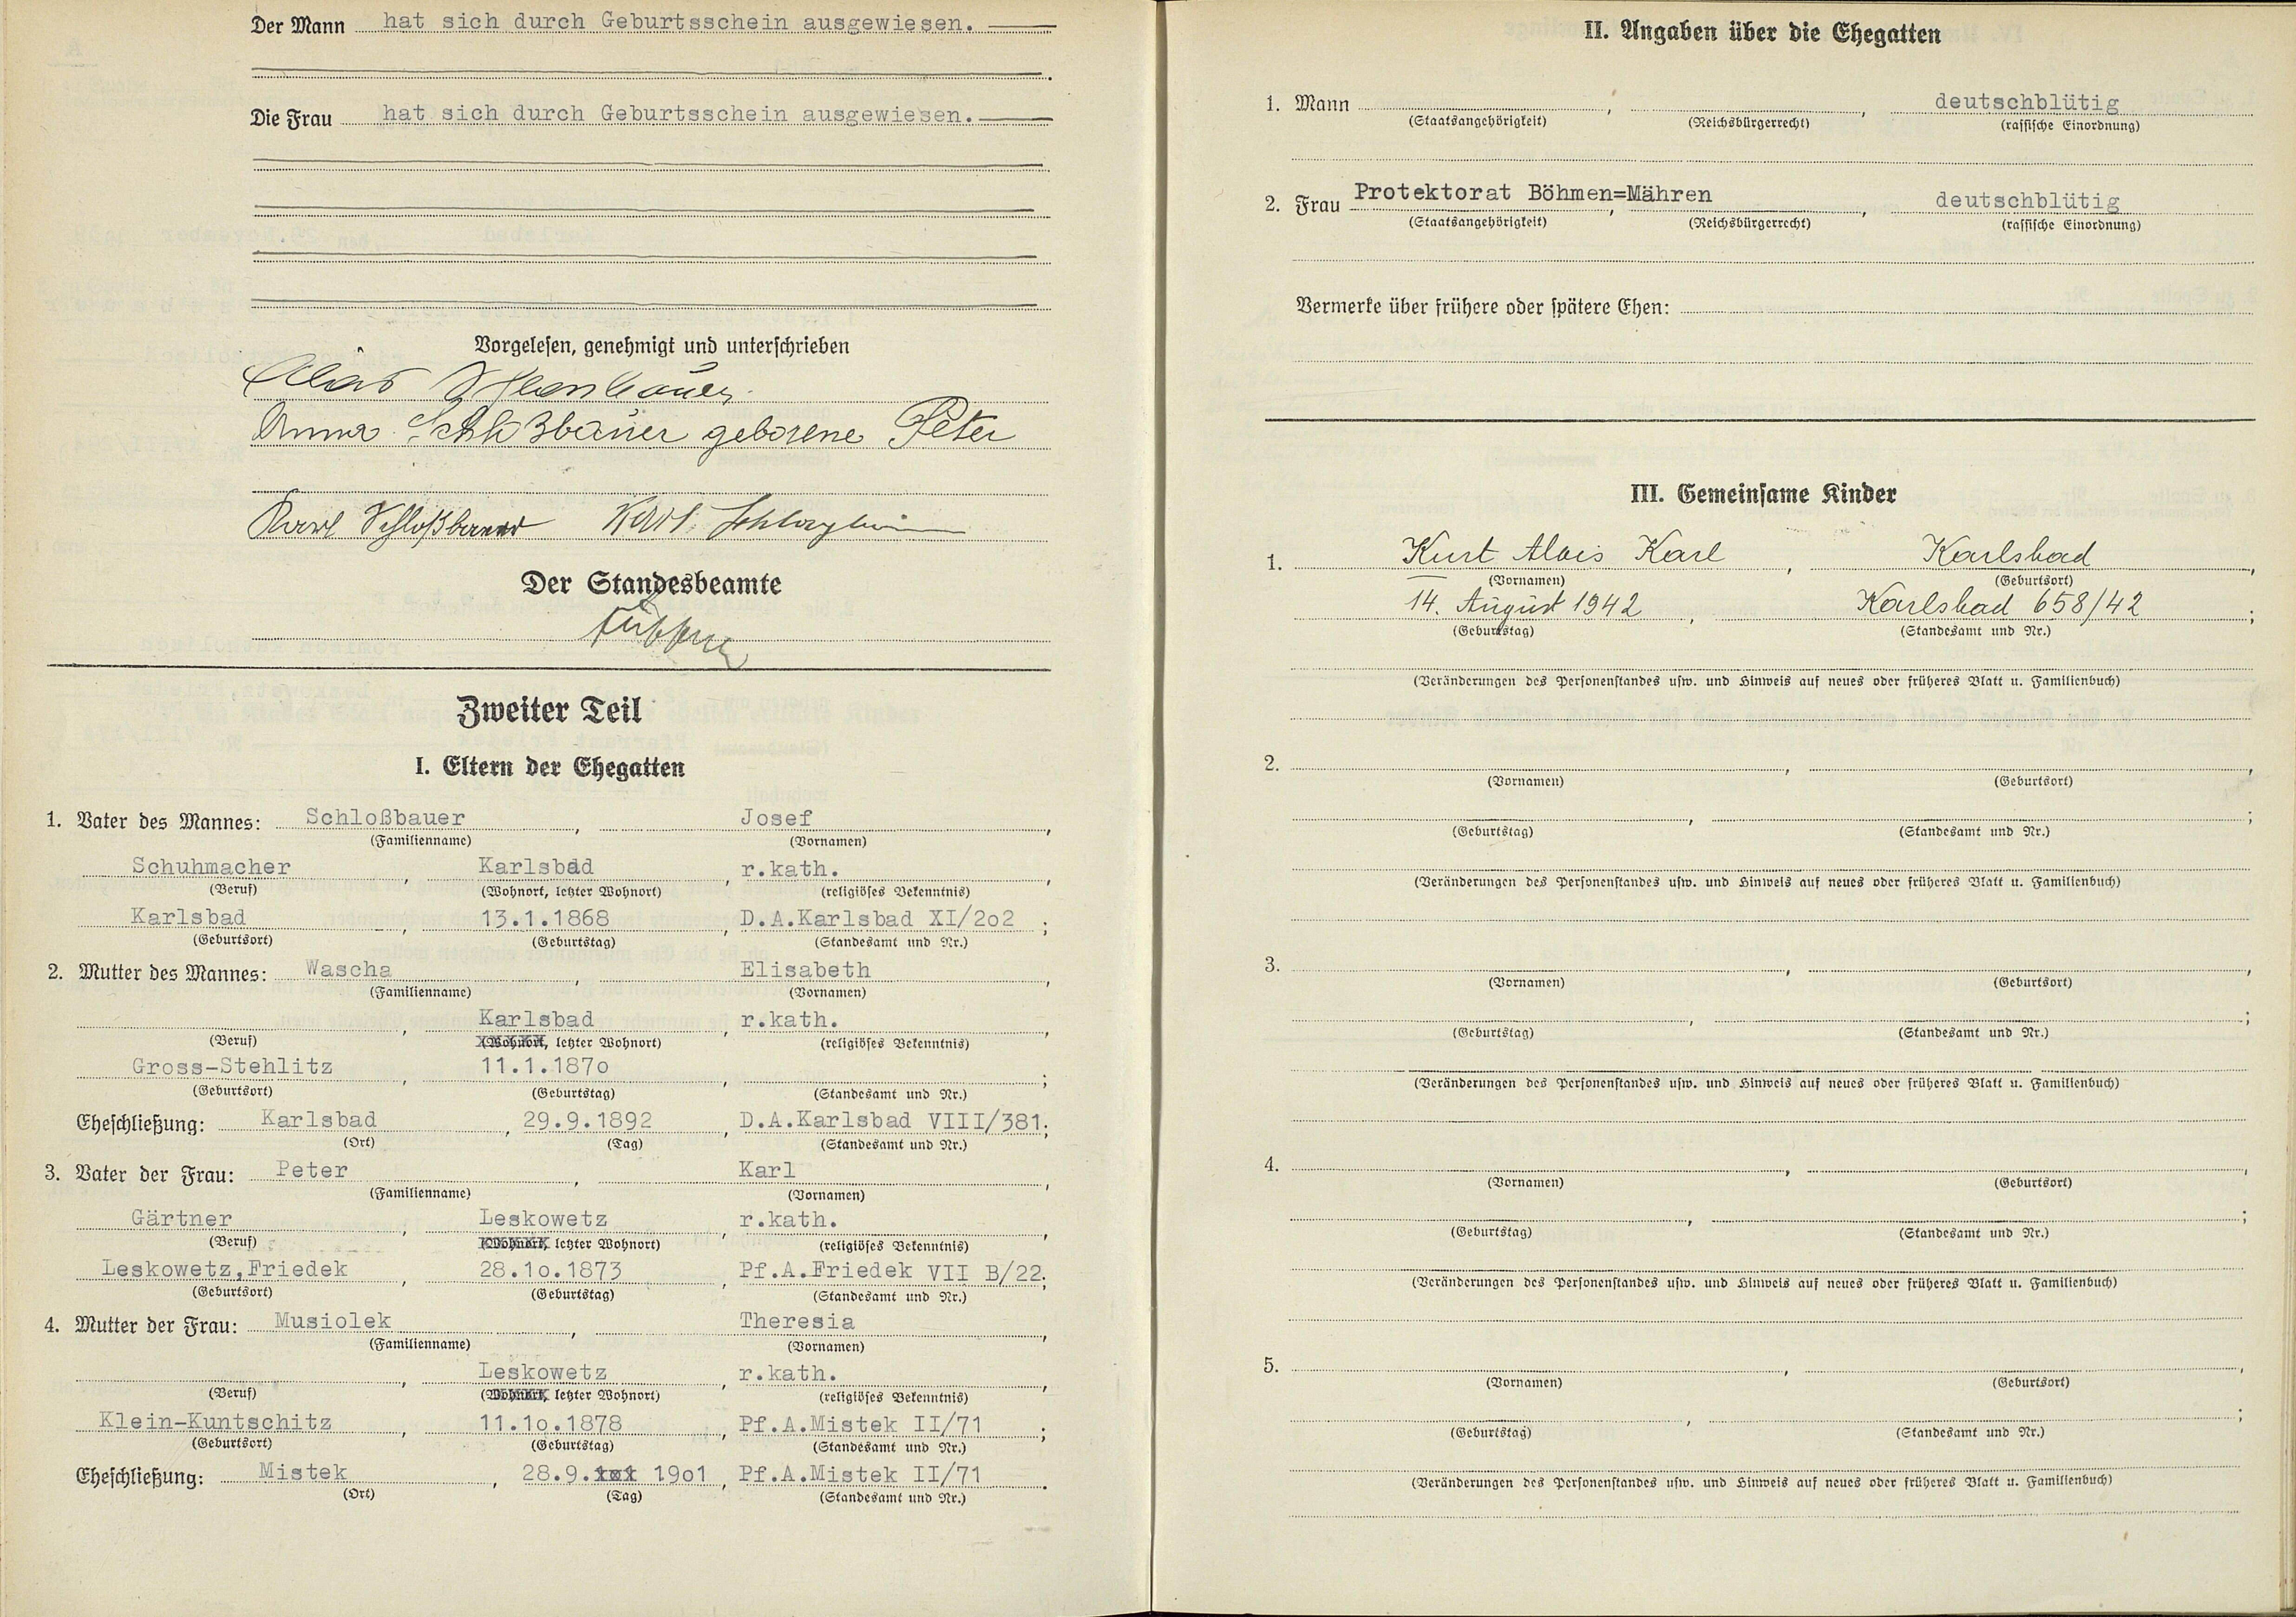 Der Mann hat sich durch Geburtsschein ausgewiesen.
Die Frau hat sich durch Geburtsschein ausgewiesen.
Vorgelesen, genehmigt und unterschrieben
Alois Schloßbauer
Anna Schloßbauer geborene Peter
Karl Schloßbauer Karl
Der Standesbeamte
Zweiter Teil
I. Eltern der Ehegatten
1. Vater des Mannes: Schloßbauer, Josef,
(Familienname) (Vornamen)
Schuhmacher, Karlsbad, r.kath.,
(Beruf) (Wohnort, letzter Wohnort) (religiöses Bekenntnis)
Karlsbad, 13.1.1868, D.A.Karlsbad XI/2o2;
(Geburtsort) (Geburtstag) (Standesamt und Nr.)
2. Mutter des Mannes: Wascha, Elisabeth,
(Familienname) (Vornamen)
, Karlsbad, r.kath.,
(Beruf) (Wohnort, letzter Wohnort) (religiöses Bekenntnis)
Gross-Stehlitz, 11.1.187o, ;
(Geburtsort) (Geburtstag) (Standesamt und Nr.)
Eheschließung: Karlsbad, 29.9.1892, D.A.Karlsbad VIII/381;
(Ort) (Tag) (Standesamt und Nr.)
3. Vater der Frau: Peter, Karl,
(Familienname) (Vornamen)
Gärtner, Leskowetz, r.kath.,
(Beruf) (Wohnort, letzter Wohnort) (religiöses Bekenntnis)
Leskowetz,Friedek, 28.1o.1873, Pf.A.Friedek VII B/22;
(Geburtsort) (Geburtstag) (Standesamt und Nr.)
4. Mutter der Frau: Musiolek, Theresia,
(Familienname) (Vornamen)
, Leskowetz, r.kath.,
(Beruf) (Wohnort, letzter Wohnort) (religiöses Bekenntnis)
Klein-Kuntschitz, 11.1o.1878, Pf.A.Mistek II/71;
(Geburtsort) (Geburtstag) (Standesamt und Nr.)
Eheschließung: Mistek, 28.9. 19o1, Pf.A.Mistek II/71.
(Ort) (Tag) (Standesamt und Nr.)
II. Angaben über die Ehegatten
1. Mann , , deutschblütig
(Staatsangehörigkeit) (Reichsbürgerrecht) (rassische Einordnung)
2. Frau Protektorat Böhmen=Mähren, , deutschblütig
(Staatsangehörigkeit) (Reichsbürgerrecht) (rassische Einordnung)
Vermerke über frühere oder spätere Ehen:
III. Gemeinsame Kinder
1. Kurt Alois Karl, Karlsbad,
(Vornamen) (Geburtsort)
14. August 1942, Karlsbad 658/42;
(Geburtstag) (Standesamt und Nr.)
(Veränderungen des Personenstandes usw. und Hinweis auf neues oder früheres Blatt u. Familienbuch)
2. , ,
(Vornamen) (Geburtsort)
, ;
(Geburtstag) (Standesamt und Nr.)
(Veränderungen des Personenstandes usw. und Hinweis auf neues oder früheres Blatt u. Familienbuch)
3. , ,
(Vornamen) (Geburtsort)
, ;
(Geburtstag) (Standesamt und Nr.)
(Veränderungen des Personenstandes usw. und Hinweis auf neues oder früheres Blatt u. Familienbuch)
4. , ,
(Vornamen) (Geburtsort)
, ;
(Geburtstag) (Standesamt und Nr.)
(Veränderungen des Personenstandes usw. und Hinweis auf neues oder früheres Blatt u. Familienbuch)
5. , ,
(Vornamen) (Geburtsort)
, ;
(Geburtstag) (Standesamt und Nr.)
(Veränderungen des Personenstandes usw. und Hinweis auf neues oder früheres Blatt u. Familienbuch)